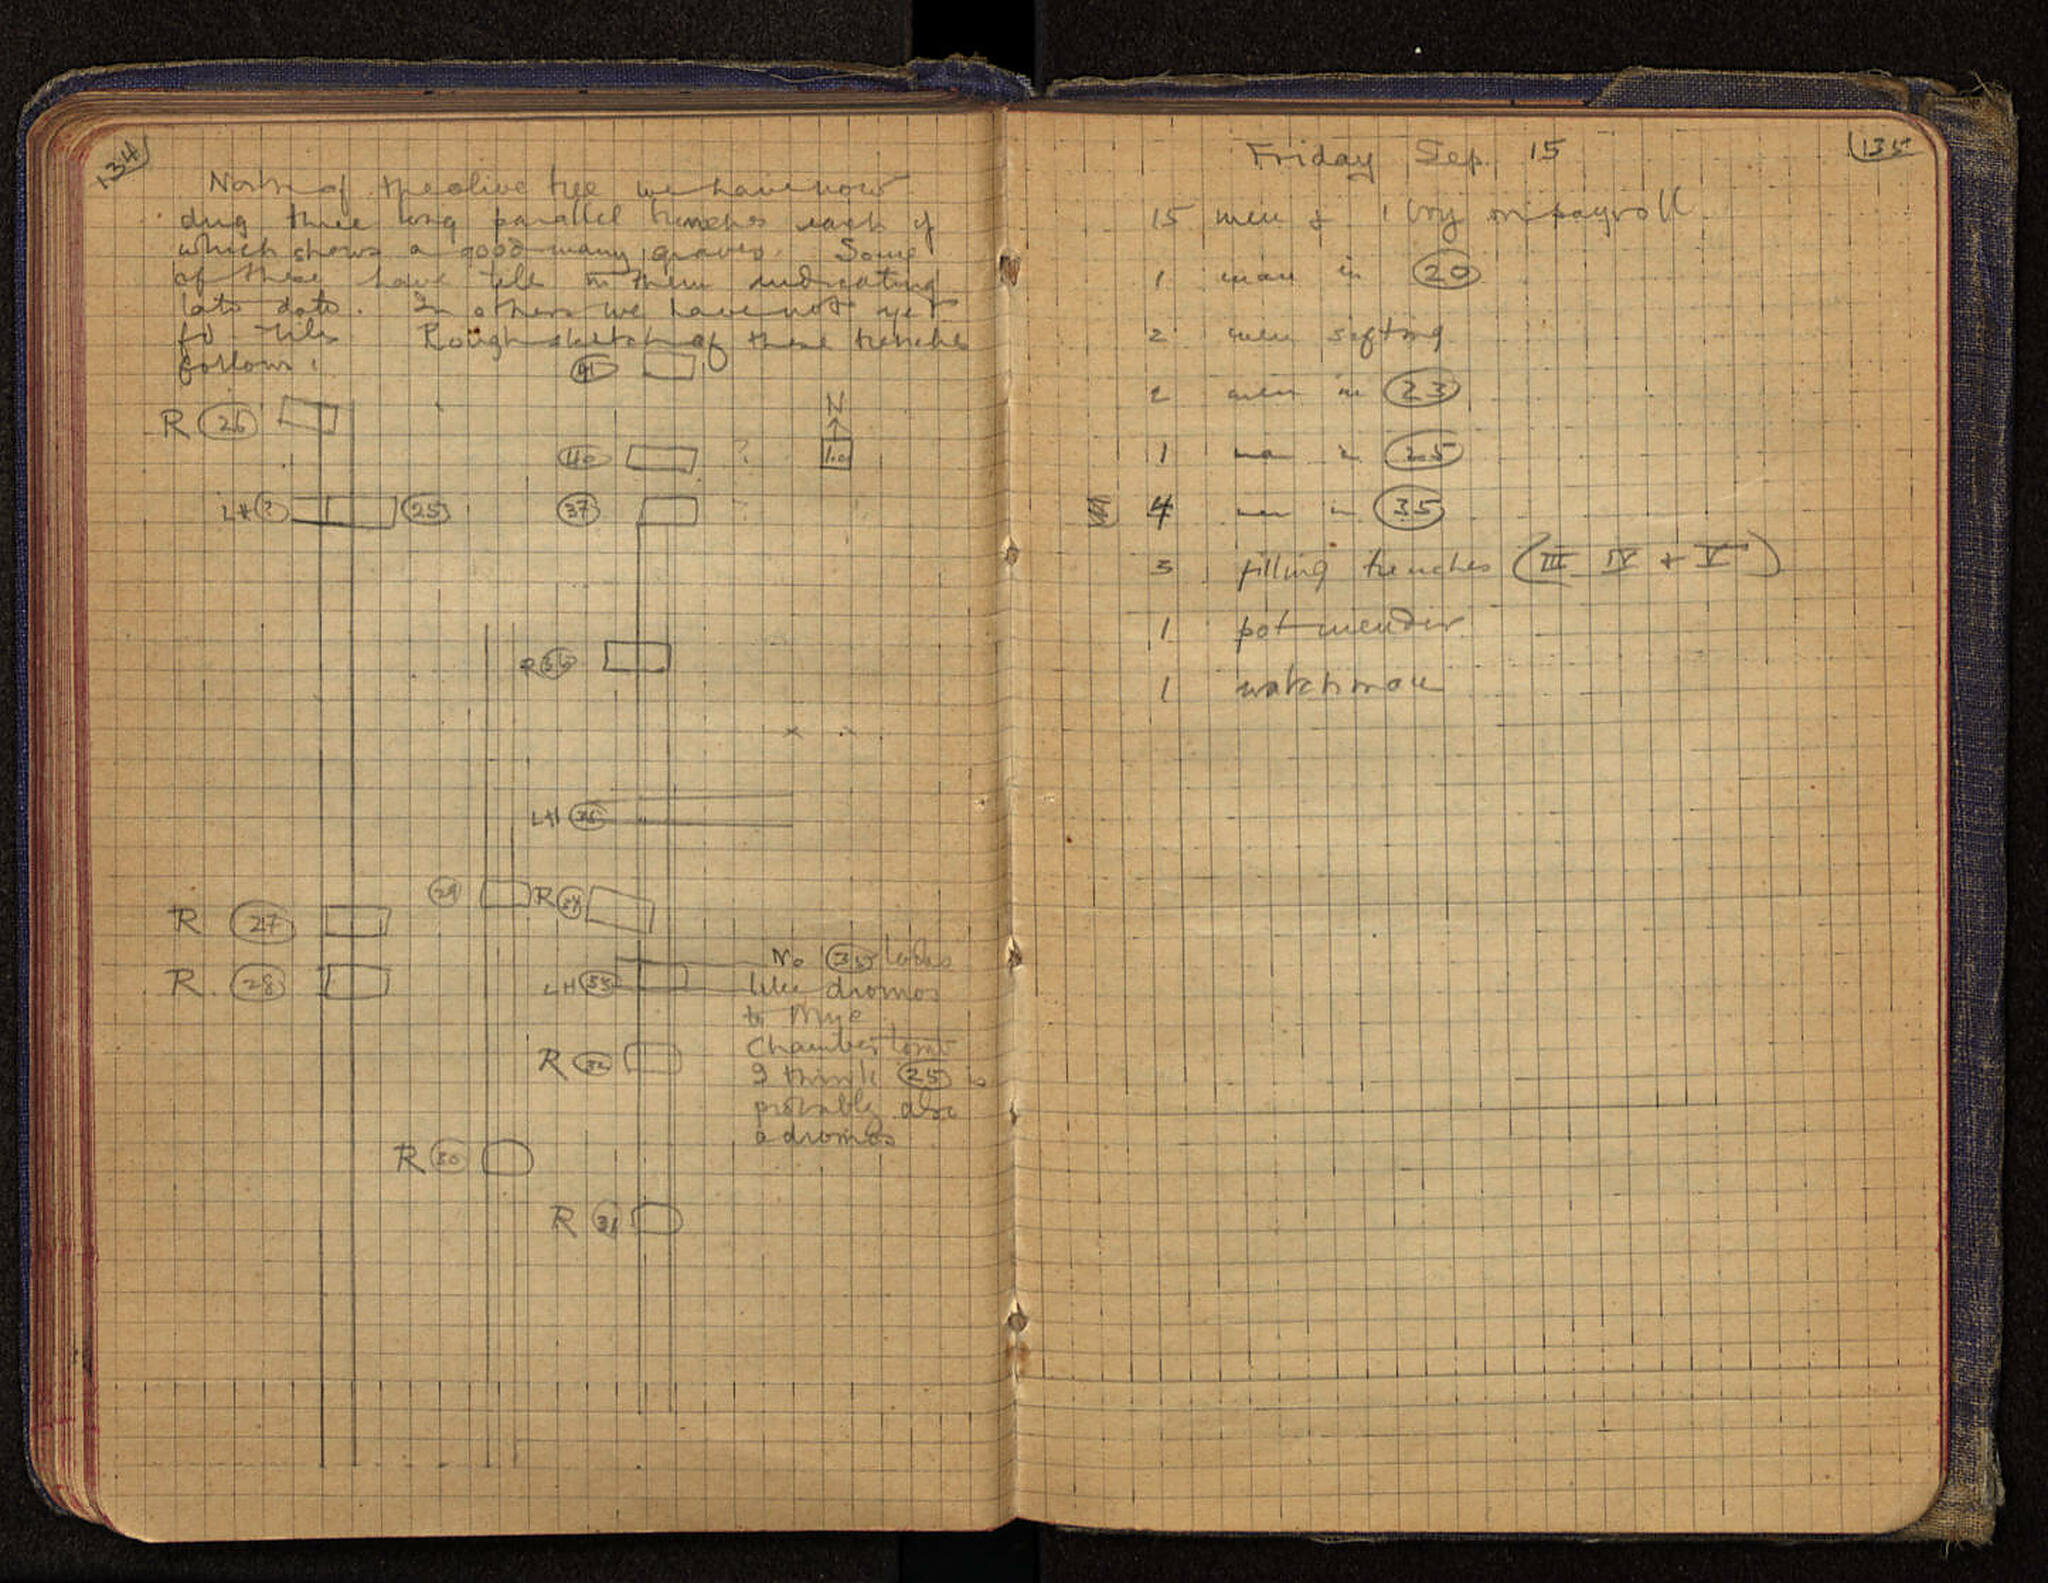 134
North of the olive tree we have now
dug three long parallel trenches each of
which shows a good many graves. Some
of these have tile in them indicating
late date. In others we have not yet
fd tiles Rough sketch of these trenches
follows:
41
N
R 26
40 ?
1.0
LH ? 25 37
R 36
LH
29 R 34
R 27
R 28
LH 33
No 35 looks
like dromos
to Myc
Chamber tomb
I think 25 is
probably also
a dromos
R 32
R 30
R 31
135
Friday Sep. 15
15 men & 1 boy on payroll
1 man in 20
2 men sifting
2 men in 23
1 man in 25
4 men in 35
3 filling trenches (III IV + V)
1 pot mender
1 watchman